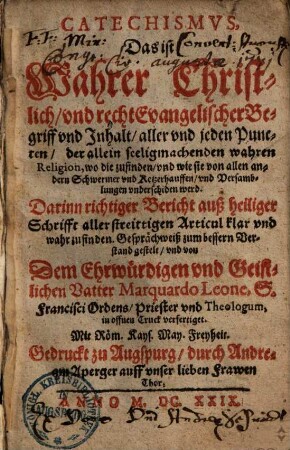 CATECHISMVS,
Das ist
Wahrer Christ-
lich/ vnd recht Evangelischer Be-
griff vnd Inhalt/ aller vnd jeden Punc-
ten/ der allein seeligmachenden wahren
Religion, wo die zufinden/ vnd wie sie von allen an-
dern Schwermer vnd Ketzerhauffen/ vnd Versamb-
lungen vnderschiden werd.
Darinn richtiger Bericht auß heiliger
Schrifft aller streittigen Articul klar vnd
wahr zufinden. Gesprächweiß zum bessern Ver-
stand gestelt/ vnd von
Dem Ehrwürdigen vnd Geist-
lichen Vatter Marquardo Leone, S.
Francisci Ordens/ Priester vnd Theologum,
in offnen Truck verfertiget.
Mit Röm. Kays. May. Freyheit.
Gedruckt zu Augspurg/ durch Andre-
am Aperger auff vnser lieben Frawen
Thor/
ANNO M. DC. XXIX.